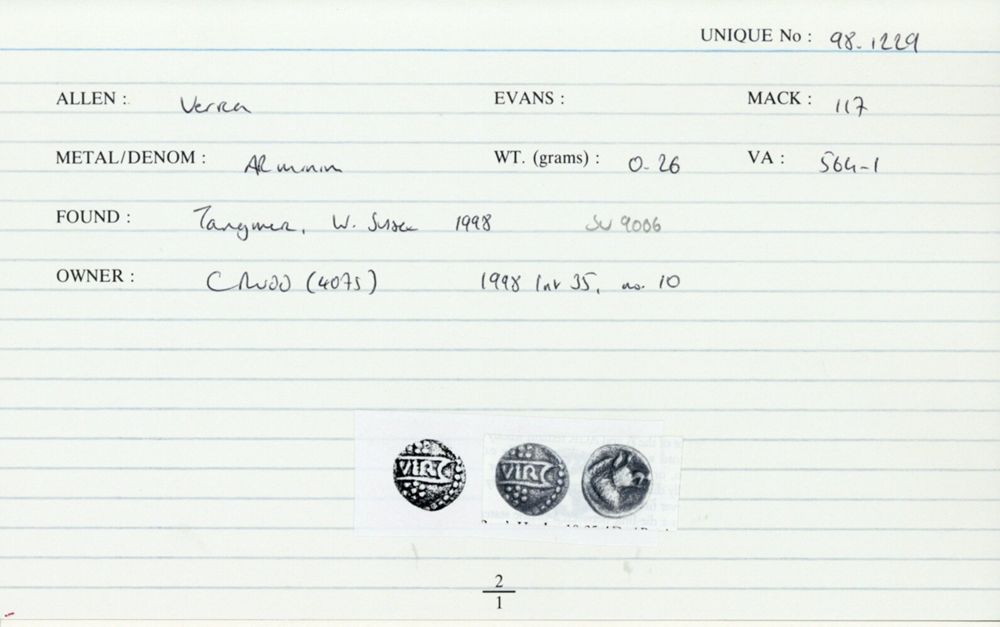 UNIQUE No : 98.1229
ALLEN : Verica EVANS : MACK : 117
METAL/DENOM : AR minim WT. (grams) : 0.26 VA : 564-1
FOUND : Tangmere, W. Sussex 1998 SU 9006
OWNER : CRUDD (4075) 1998 list 35, no. 10
VIRC VIRC
2
1